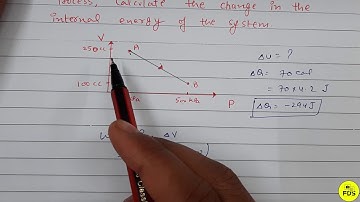 process, Calculate the change in the
internal energy of the system.
V
250cc
A
B
100cc
500 kPa
P
ΔU = ?
ΔQ = 70 cal
= 70×4.2 J
ΔQ = -294 J
ΔV
FOS